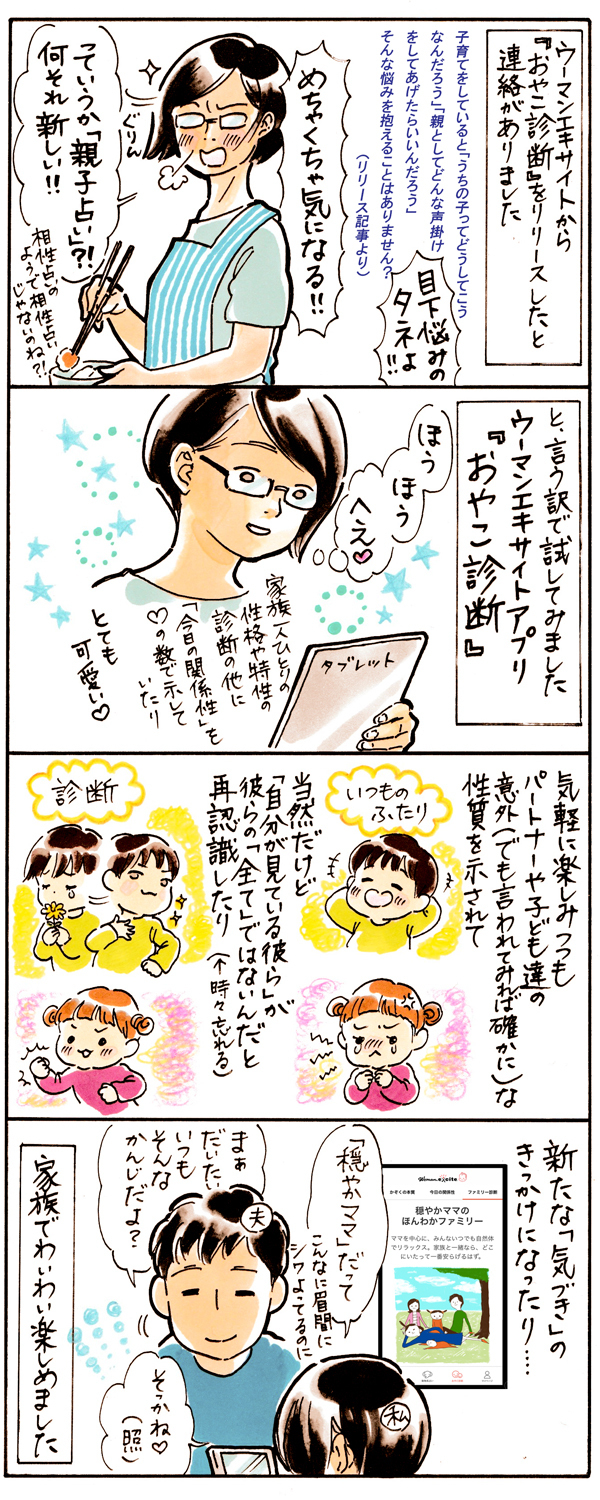 ウーマンエキサイトから
『おやこ診断』をリリースしたと
連絡がありました
子育てをしていると「うちの子ってどうしてこう
なんだろう」「親としてどんな声掛け
をしてあげたらいいんだろう」
そんな悩みを抱えることはありません?
(リリース記事より)
目下悩みの
タネよ!!
めちゃくちゃ気になる!!
ぐりん
っていうか「親子占い」?!
何それ新しい!!
相性占いの
ようで相性占い
じゃないのね?!
と、言う訳で試してみました
ウーマンエキサイトアプリ
『おやこ診断』
ほう
ほう
へえ♥
タブレット
家族一人ひとりの
性格や特性の
診断の他に
「今日の関係性」を
♡の数で示して
いたり
とても
可愛い♡
気軽に楽しみつつも
パートナーや子ども達の
意外(でも言われてみれば確かに)な
性質を示されて
いつもの
ふたり
当然だけど
「自分が見ている彼ら」が
彼らの「全て」ではないんだと
再認識したり(←時々忘れる)
診断
新たな「気づき」の
きっかけになったり…
Woman.excite
かぞくの本質
今日の関係性
ファミリー診断
穏やかママの
ほんわかファミリー
ママを中心に、みんないつでも自然体
でリラックス。家族と一緒なら、どこ
にいたって一番安らげるはず。
「穏やかママ」だって
こんなに眉間に
シワよってるのに
私
夫
まぁ
だいたい
いつも
そんな
かんじだよ?
そっかね♡
(照)
家族でわいわい楽しめました